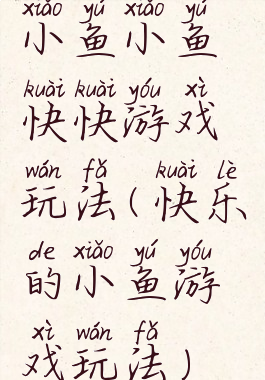 xiǎo yú xiǎo yú
小鱼小鱼
kuài kuài yóu xì
快快游戏
wán fǎ ( kuài lè
玩法(快乐
de xiǎo yú yóu
的小鱼游
xì wán fǎ
戏玩法)